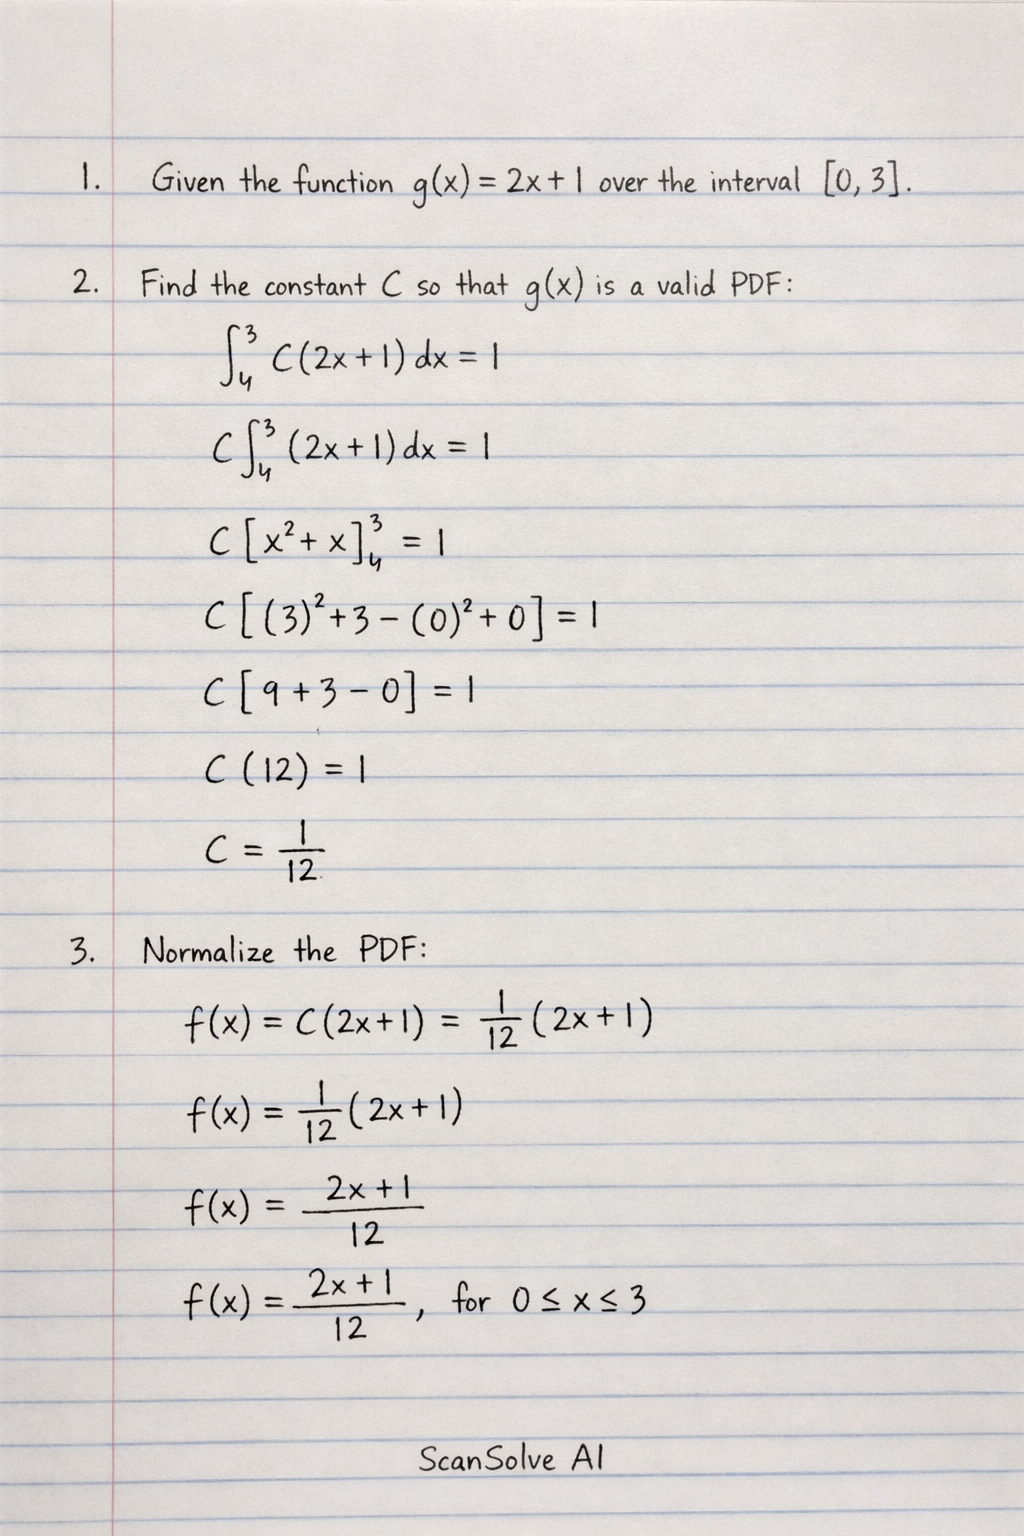 1. Given the function g(x) = 2x + 1 over the interval [0, 3].
2. Find the constant C so that g(x) is a valid PDF:
∫₄³ C(2x + 1) dx = 1
C ∫₄³ (2x + 1) dx = 1
C [x² + x]₄³ = 1
C [(3)² + 3 − (0)² + 0] = 1
C [9 + 3 − 0] = 1
C (12) = 1
C = 1/12
3. Normalize the PDF:
f(x) = C(2x + 1) = 1/12 (2x + 1)
f(x) = 1/12 (2x + 1)
f(x) = (2x + 1)/12
f(x) = (2x + 1)/12, for 0 ≤ x ≤ 3
ScanSolve AI